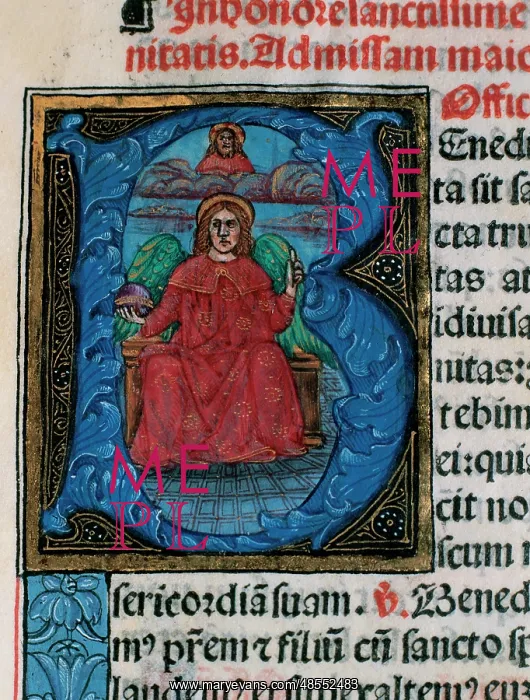 In honore sanctissime
nitatis. Ad missam maio
Offic
Enedi
ta sit sa
cta tri
tas at
idiuisa
nitas:
tebim
ei: qui
cit no
scum
sericordiā suam. ℣. Bened
mꝰ p̄rem ⁊ filiū cū sancto sp
ME
PL
ME
PL
www.maryevans.com/48552483